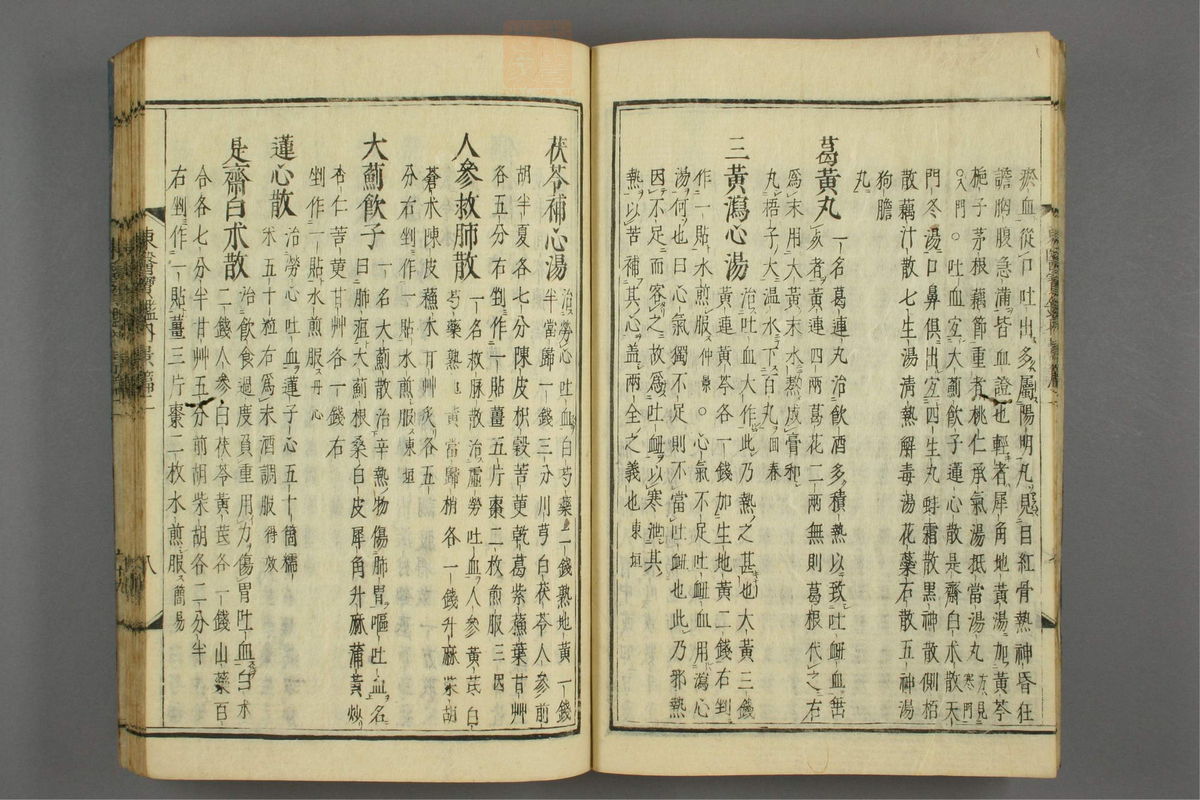 瘀血從口吐出多屬陽明丸見目紅骨熱神昏狂
譫胸腹急滿皆血證也輕者犀角地黃湯加黃芩
梔子茅根藕節重者桃仁承氣湯抵當湯丸方見寒門
入門○吐血宜大薊飲子蓮心散是齋白朮散天
門冬湯口鼻俱出宜四生丸蚌霜散黑神散側栢
散藕汁散七生湯清熱解毒湯花蘂石散五神湯
狗膽丸
葛黃丸 一名葛連丸治飲酒多積熱以致吐衄血
亥者黃連四兩葛花二兩無則葛根代之右
爲末用大黃末水熬成膏和
丸梧子大温水下百丸回春
三黃瀉心湯 治吐血大作此乃熱之甚也大黃三錢
黃連黃芩各一錢加生地黃二錢右剉
作一貼水煎服仲景○心氣不足吐衄血用瀉心
湯何也曰心氣獨不足則不當吐衄也此乃邪熱
因不足而客之故爲吐衄以寒泄其
熱以苦補其心盖兩全之義也東垣
茯苓補心湯 治勞心吐血白芍藥二錢熟地黃一錢
半當歸一錢三分川芎白茯苓人參前
胡半夏各七分陳皮枳殼苦莄乾葛紫蘇葉甘艸
各五分右剉作一貼薑五片棗二枚煎服三因
人參救肺散 一名救脉散治虛勞吐血人參黃芪白
芍藥熟地黃當歸梢各一錢升麻柴胡
蒼朮陳皮蘇木甘艸灸各五
分右剉作一貼水煎服東垣
大薊飲子 一名大薊散治辛熱物傷肺胃嘔吐血名
曰肺疽大薊根桑白皮犀角升麻蒲黃炒
杏仁苦莄甘艸各一錢右
剉作一貼水煎服丹心
蓮心散 治勞心吐血蓮子心五十箇糯
米五十粒右爲末酒調服得效
是齋白朮散 治飲食過度負重用力傷胃吐血白朮
二錢人參白茯苓黃芪各一錢山藥百
合各七分半甘艸五分前胡柴胡各二分半
右剉作一貼薑三片棗二枚水煎服簡易
東醫寶鑑內景篇二
八